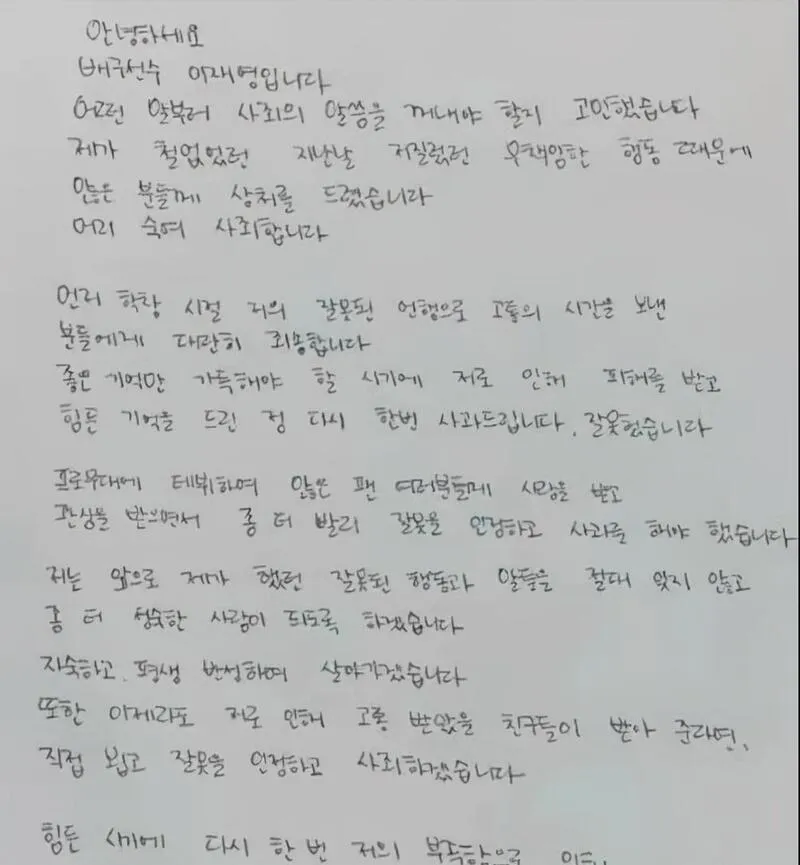 안녕하세요
배구선수 이재영입니다
어떤 말부터 사죄의 말씀을 꺼내야 할지 고민했습니다
제가 철없었던 지난날 저질렀던 무책임한 행동 때문에
많은 분들께 상처를 드렸습니다
머리 숙여 사죄합니다
먼저 학창 시절 저의 잘못된 언행으로 고통의 시간을 보낸
분들에게 대단히 죄송합니다
좋은 기억만 가득해야 할 시기에 저로 인해 피해를 받고
힘든 기억을 드린 점 다시 한번 사과드립니다. 잘못했습니다
프로무대에 데뷔하여 많은 팬 여러분들께 사랑을 받고
관심을 받으면서 좀 더 빨리 잘못을 인정하고 사과를 해야 했습니다
저는 앞으로 제가 했던 잘못된 행동과 말들을 절대 잊지 않고
좀 더 성숙한 사람이 되도록 하겠습니다
자숙하고 평생 반성하며 살아가겠습니다
또한 이제라도 저로 인해 고통 받았을 친구들이 받아 준다면,
직접 뵙고 잘못을 인정하고 사죄하겠습니다
힘든 시기에 다시 한 번 저의 부족함으로